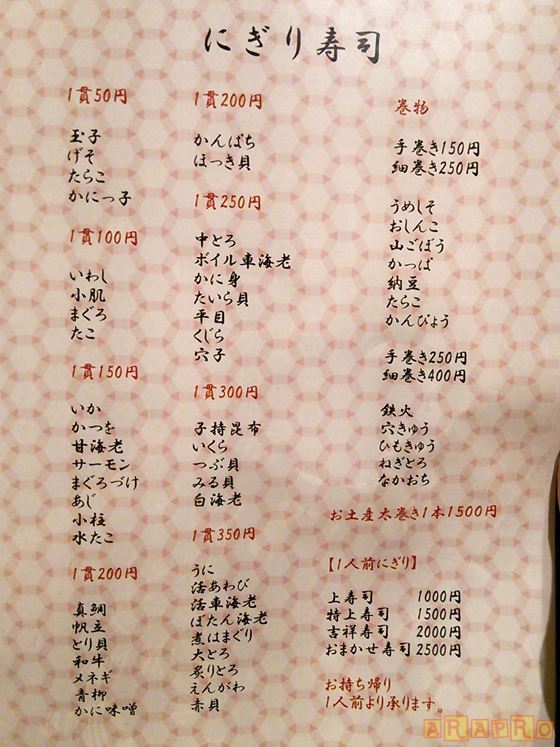 にぎり寿司
1貫50円
玉子
げそ
たらこ
かにっ子
1貫100円
いわし
小肌
まぐろ
たこ
1貫150円
いか
かつを
甘海老
サーモン
まぐろづけ
あじ
小柱
水たこ
1貫200円
真鯛
帆立
とり貝
和牛
メネギ
青柳
かに味噌
1貫200円
かんぱち
ほっき貝
1貫250円
中とろ
ボイル車海老
かに身
たいら貝
平目
くじら
穴子
1貫300円
子持昆布
いくら
つぶ貝
みる貝
白海老
1貫350円
うに
活あわび
活車海老
ぼたん海老
煮はまぐり
大とろ
炙りとろ
えんがわ
赤貝
巻物
手巻き150円
細巻き250円
うめしそ
おしんこ
山ごぼう
かっぱ
納豆
たらこ
かんぴょう
手巻き250円
細巻き400円
鉄火
穴きゅう
ひもきゅう
ねぎとろ
なかおち
お土産太巻き1本1500円
【1人前にぎり】
上寿司 1000円
特上寿司 1500円
吉祥寿司 2000円
おまかせ寿司 2500円
お持ち帰り
1人前より承ります。
ARAPRO